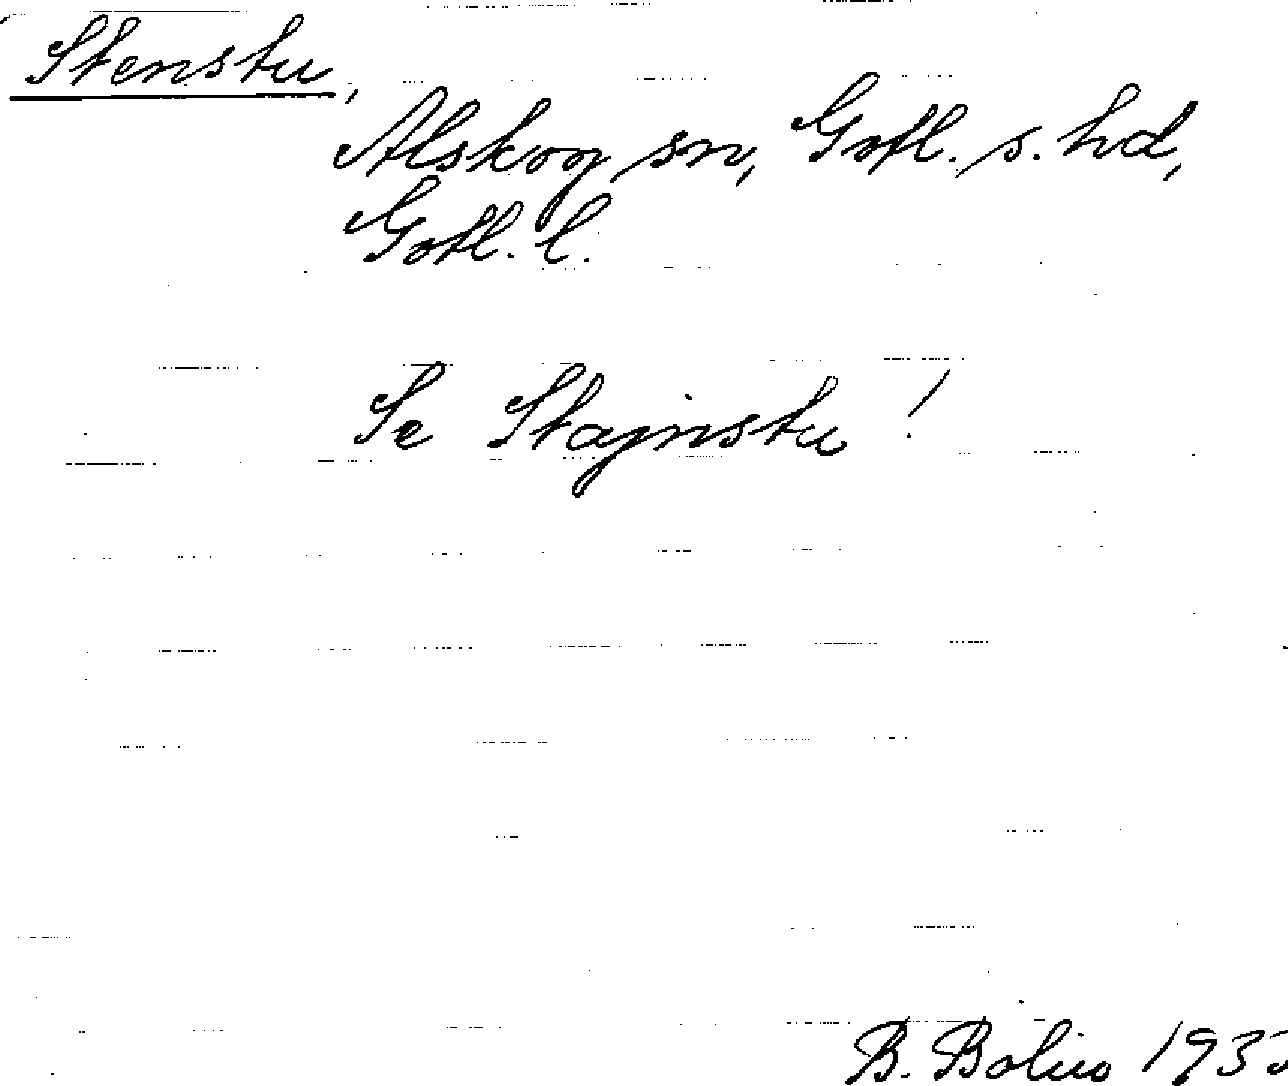 Stenstu,
Alskog sn, Gotl. s. hd,
Gotl. l.
Se Stajnstu!
B. Bolin